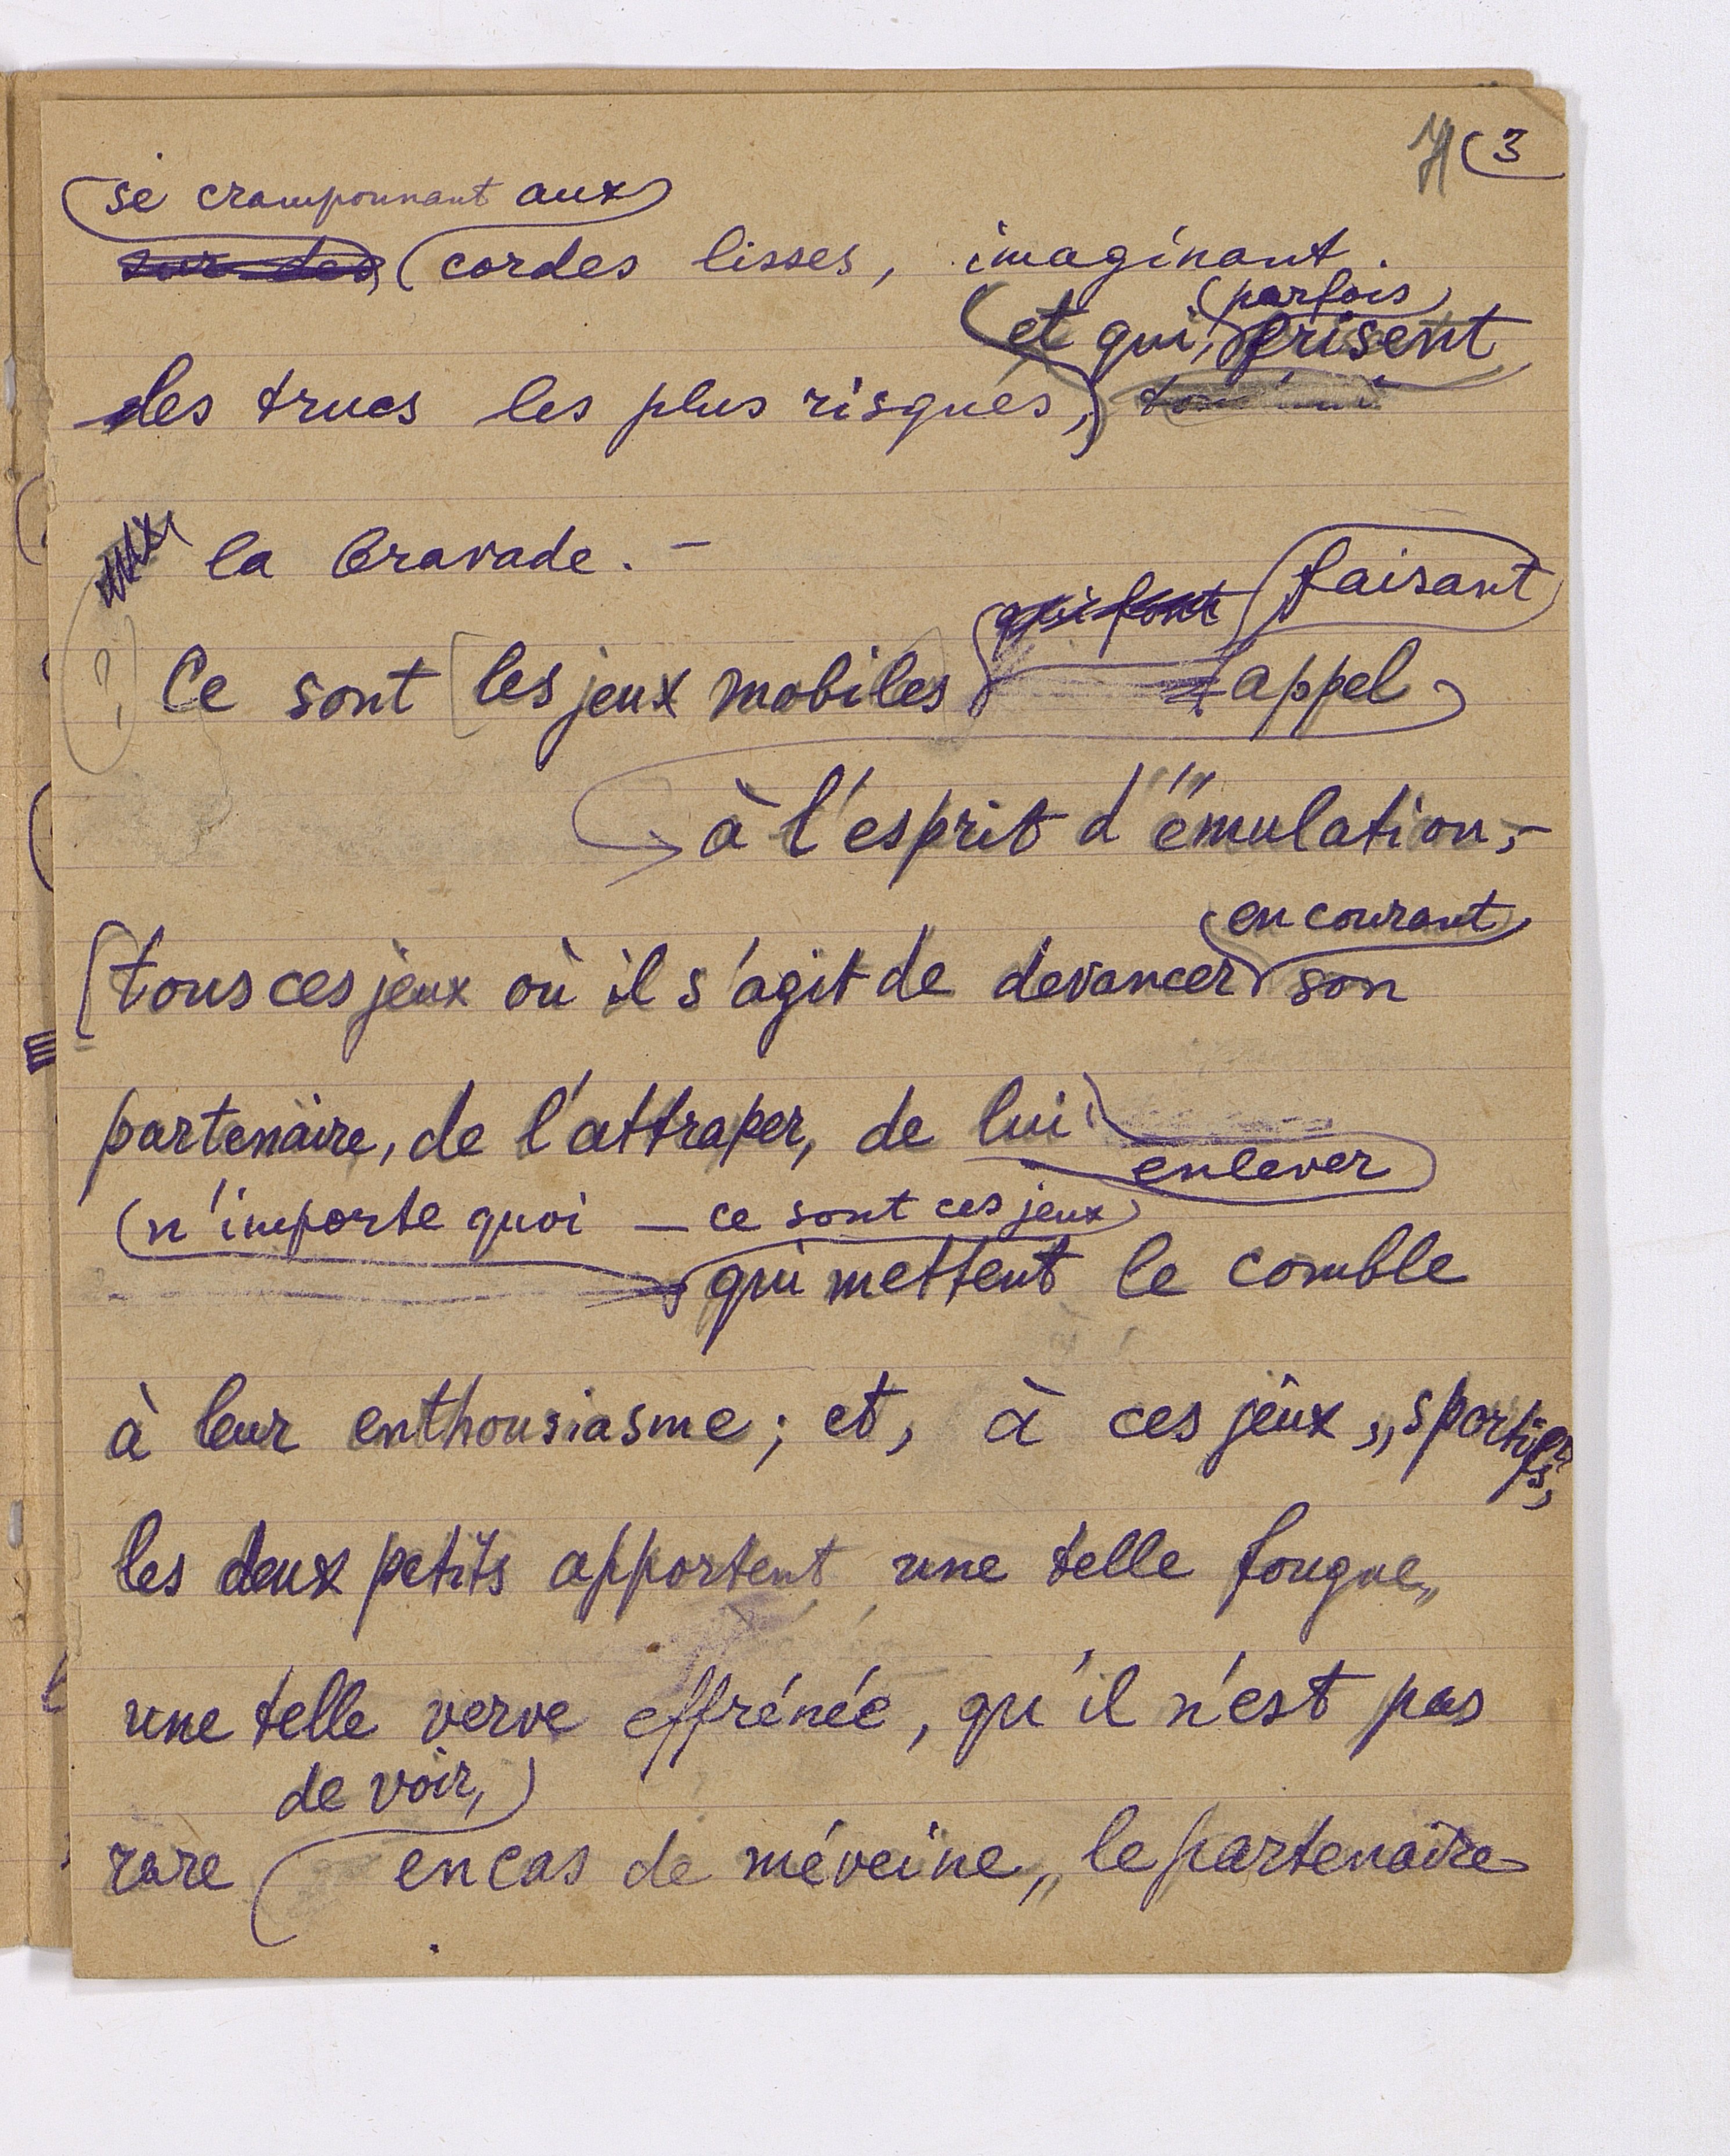 (3
se cramponnant aux
sur des cordes lisses, imaginant
et qui, parfois frisent
des trucs les plus risqués,
la bravade. —
qui font faisant
Ce sont [les jeux mobiles] appel
à l'esprit d'émulation, —
en courant
[tous ces jeux où il s'agit de devancer son
partenaire, de l'attraper, de lui
enlever
(n'importe quoi — ce sont ces jeux)
qui mettent le comble
à leur enthousiasme ; et, à ces jeux „sportifs,
les deux petits apportent une telle fougue,,
une telle verve effrénée, qu'il n'est pas
de voir,
rare en cas de méveine,, le partenaire